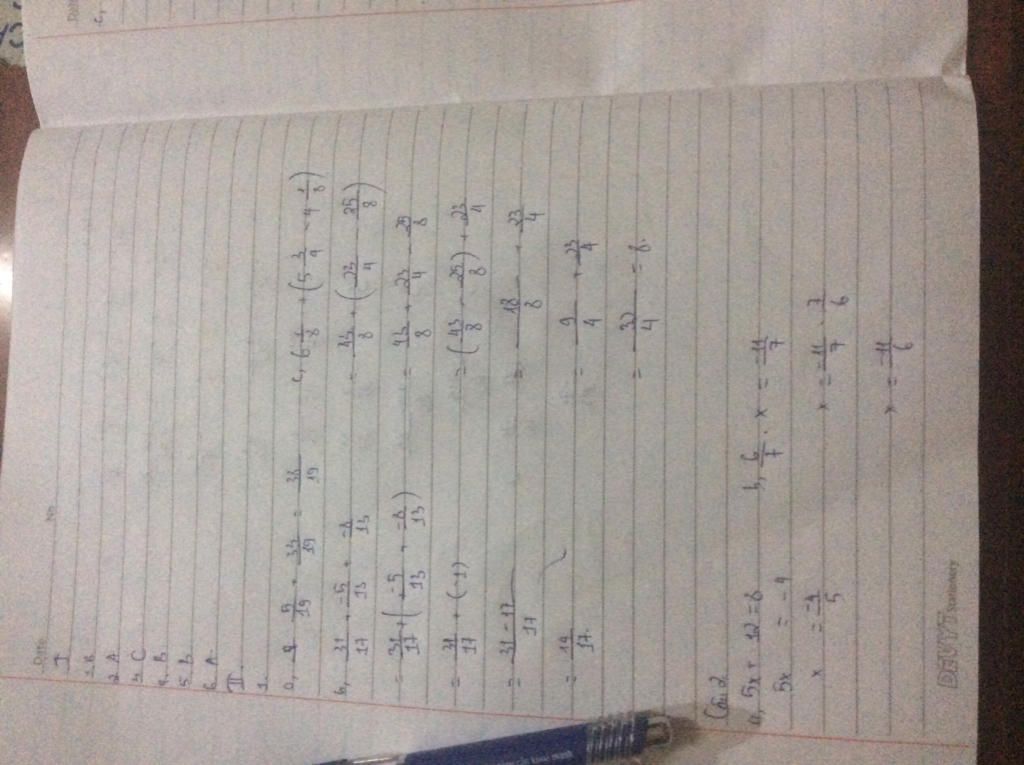 Date
No
I
1. B
2. A
3. C
4. B
5. B
6. A
II
1.
a, 5/19 + 33/19 = 38/19
b, 31/17 + -5/13 + -8/13
= 31/17 + (-5/13 + -8/13)
= 31/17 + (-1)
= 31-17/17
= 14/17
c, 6 1/8 + (5 3/4 - 4 1/8)
= 43/8 + (23/4 - 25/8)
= 43/8 + 23/4 - 25/8
= (43/8 - 25/8) + 23/4
= 18/8 + 23/4
= 9/4 + 23/4
= 32/4 = 8.
Câu 2
a, 5x + 12 = 8
5x = -4
x = -4/5
b, 6/7 . x = -11/7
x = -11/7 . 7/6
x = -11/6
Stationery